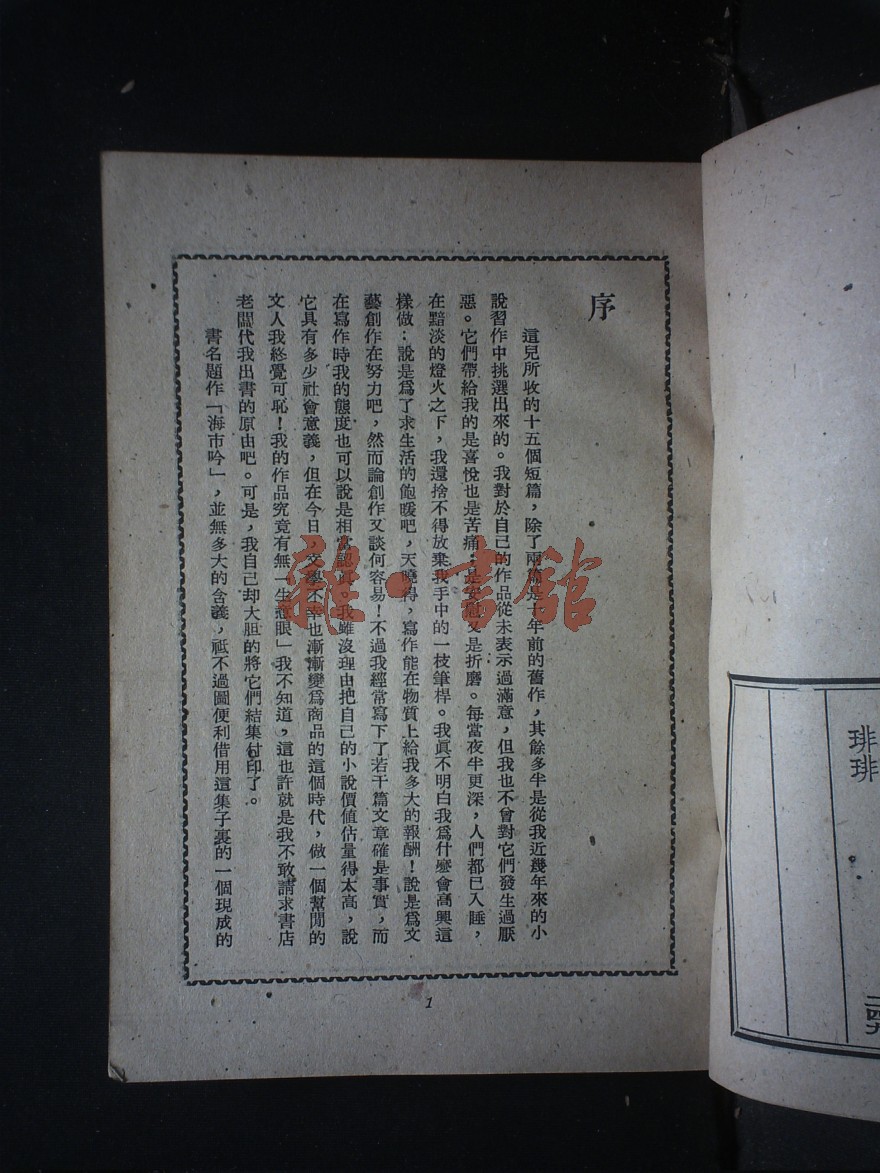 序
這兒所收的十五個短篇，除了兩篇是十年前的舊作，其餘多半是從我近幾年來的小
說習作中挑選出來的。我對於自己的作品從未表示過滿意，但我也不曾對它們發生過厭
惡。它們帶給我的是喜悅也是苦痛；是安慰又是折磨。每當夜半更深，人們都已入睡，
在黯淡的燈火之下，我還捨不得放棄我手中的一枝筆桿。我眞不明白我爲什麼會高興這
樣做：說是爲了求生活的飽暖吧，天曉得，寫作能在物質上給我多大的報酬！說是爲文
藝創作在努力吧，然而論創作又談何容易！不過我經常寫下了若干篇文章確是事實，而
在寫作時我的態度也可以說是相當認眞，我雖沒理由把自己的小說價値估量得太高，說
它具有多少社會意義，但在今日，文學不幸也漸漸變爲商品的這個時代，做一個幫閒的
文人我終覺可恥！我的作品究竟有無「生意眼」我不知道，這也許就是我不敢請求書店
老闆代我出書的原由吧。可是，我自己却大胆的將它們結集付印了。
書名題作「海市吟」，並無多大的含義，祇不過圖便利借用這集子裏的一個現成的
1
琲琲
二四九
雜·書館